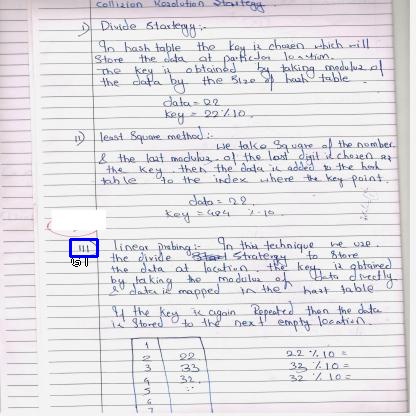 Collision Resolution Startegy
i) Divide Startegy:-
In hash table the key is chosen which will
store the data at particular location.
The key is obtained by taking modulus of
the data by the size of hash table.
data = 22
key = 22 % 10.
ii) least Square method:-
we take Square of the number
& the last modulus of the last digit is chosen as
the key then the data is added to the hash
table to the index where the key point.
data = 22.
key = 484 % 10.
iii) linear probing:- In this technique we use
the divide Strategy to store
the data at location the key is obtained
by taking the modulus of data directly
& data is mapped in the hash table
If the key is again Repeated then the data
is stored to the next empty location.
1
2 22 22 % 10 =
3 33 33 % 10 =
4 32 32 % 10 =
5
6
7